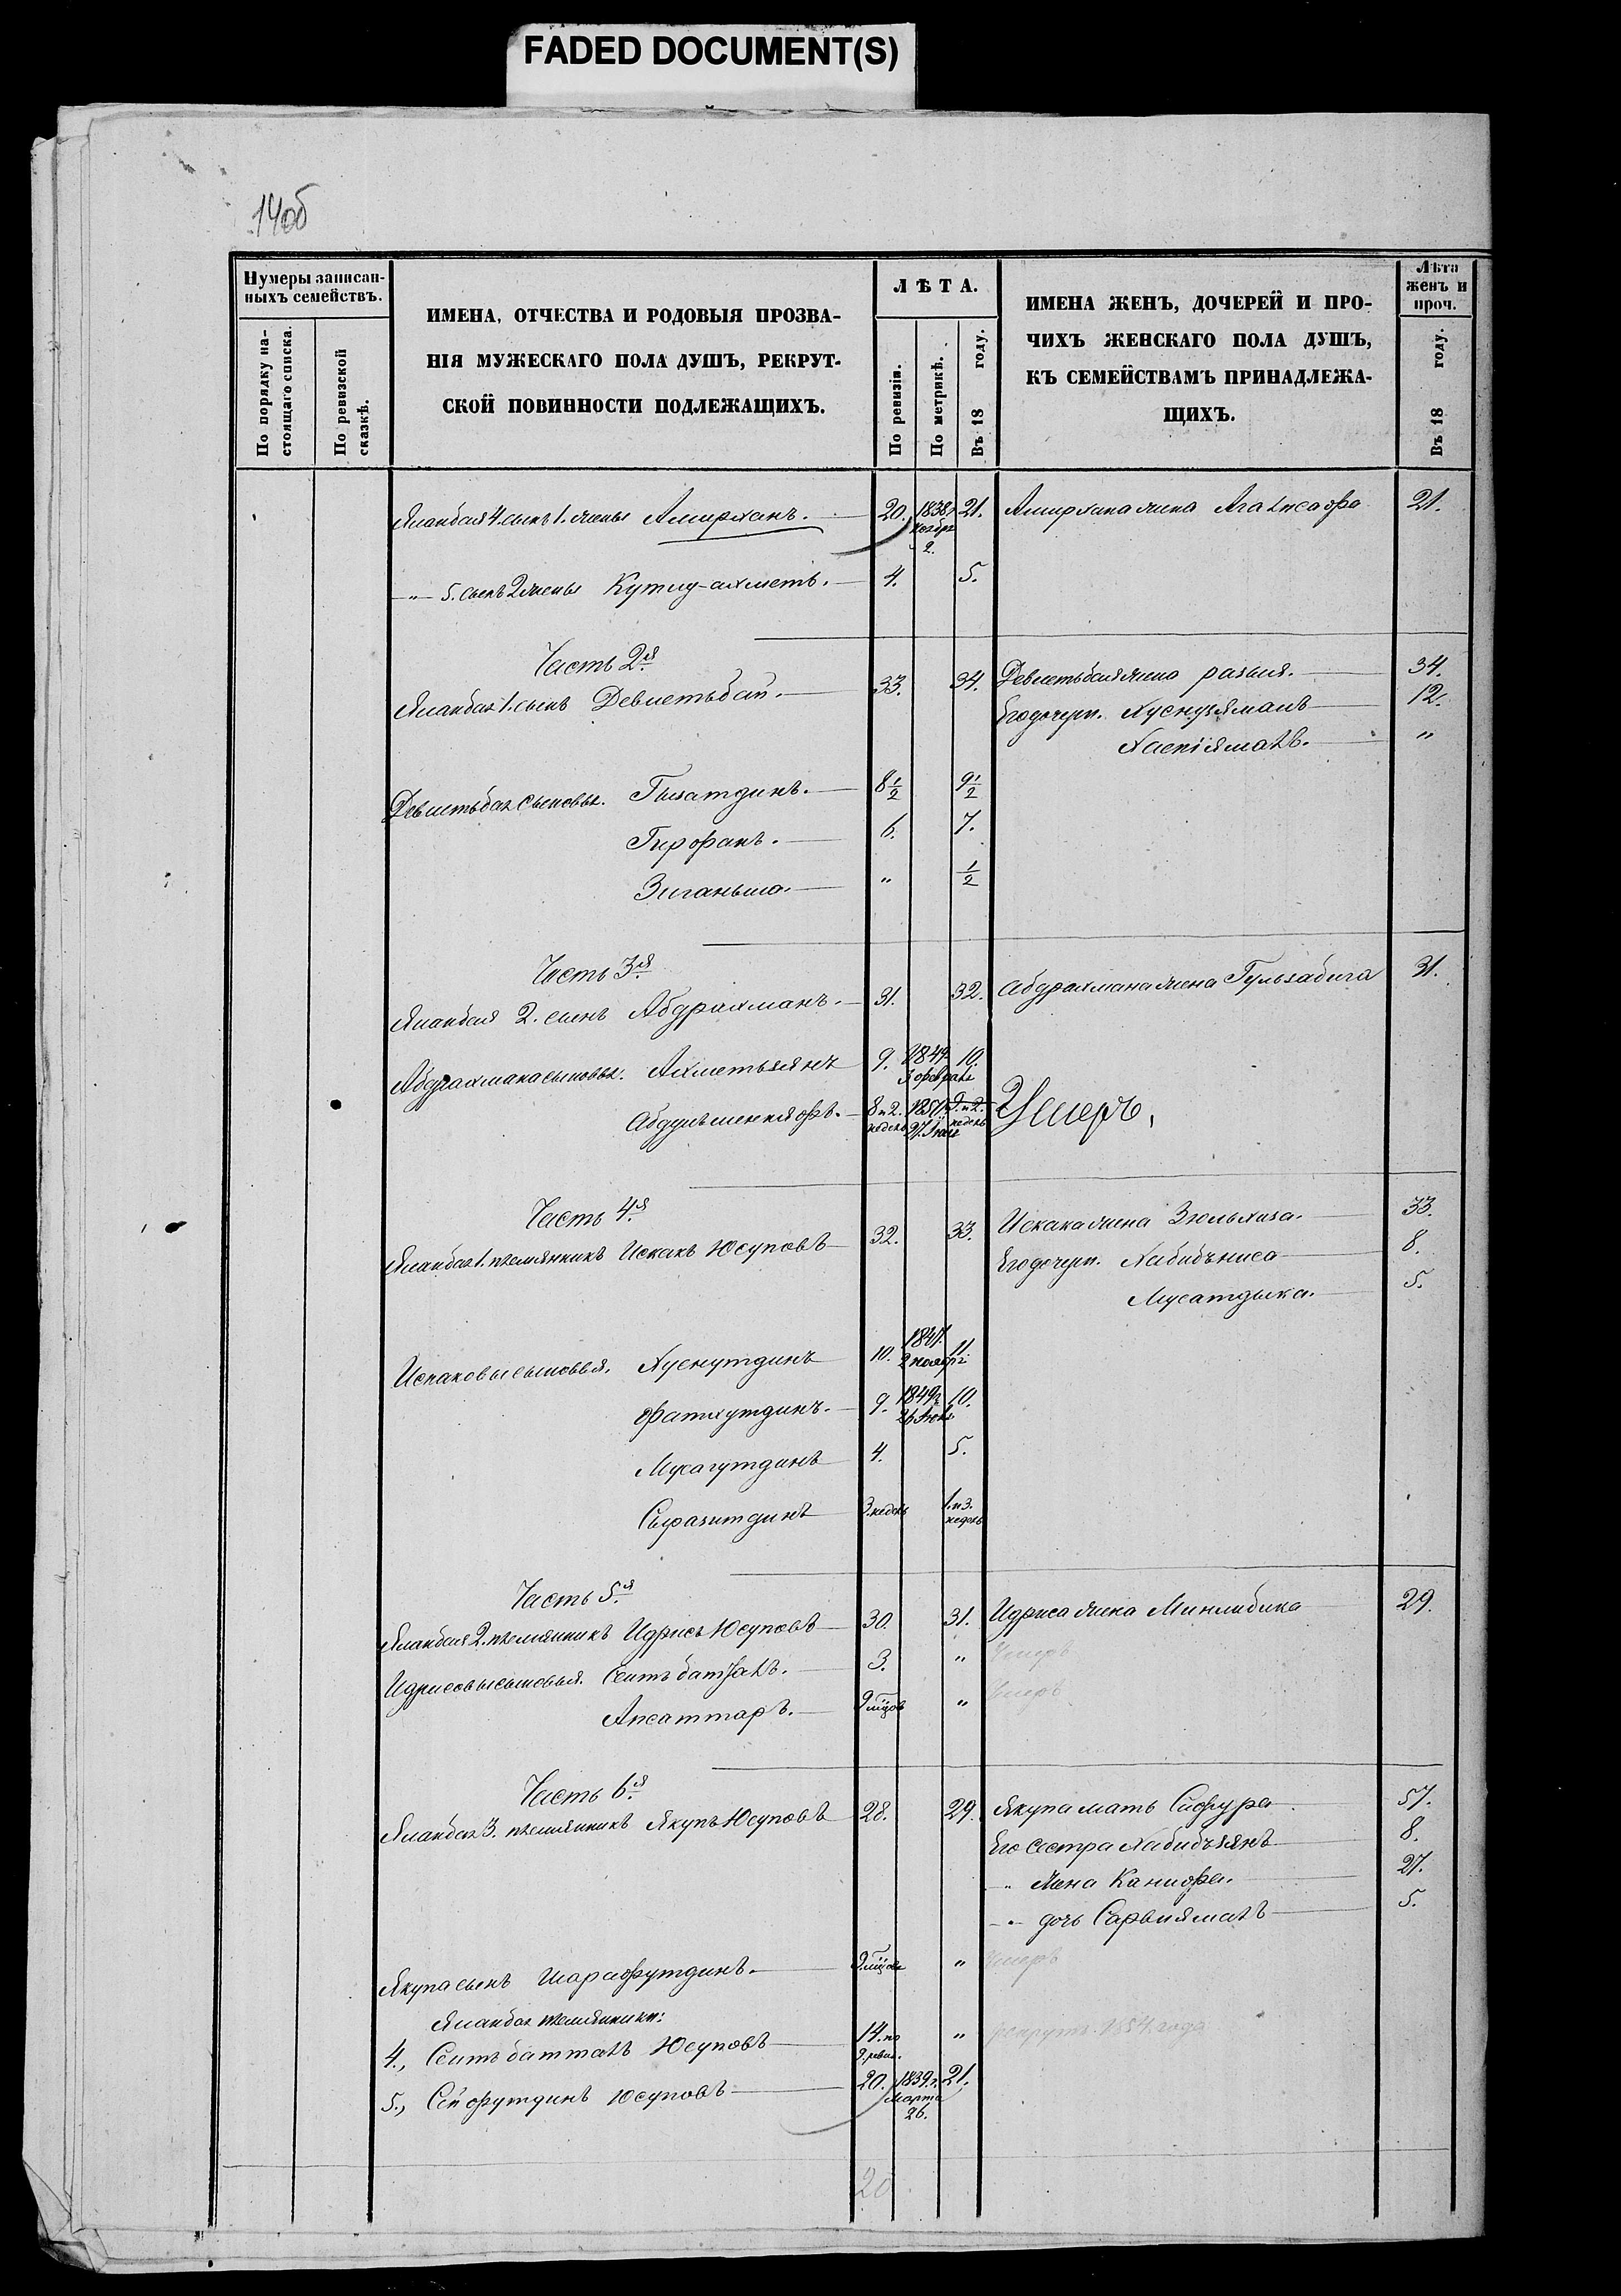 FADED DOCUMENT(S)
14об
Нумеры записан-
ныхъ семействъ.
По порядку на-
стоящаго списка.
По ревизской
сказкѣ.
ИМЕНА, ОТЧЕСТВА И РОДОВЫЯ ПРОЗВА-
НІЯ МУЖЕСКАГО ПОЛА ДУШЪ, РЕКРУТ-
СКОЙ ПОВИННОСТИ ПОДЛЕЖАЩИХЪ.
ЛѢТА.
По ревизіи.
По метрикѣ.
Въ 18 году.
ИМЕНА ЖЕНЪ, ДОЧЕРЕЙ И ПРО-
ЧИХЪ ЖЕНСКАГО ПОЛА ДУШЪ,
КЪ СЕМЕЙСТВАМЪ ПРИНАДЛЕЖА-
ЩИХЪ.
Лѣта
женъ и
проч.
Въ 18 году.
Яманбая 4. сынъ 1. жены Амирханъ. 20. 1838. 21. Амирхана жена 21.
ноября
2.
-"- 5. сынъ 2 жены Кутлу-ахметъ. 4. 5.
Часть 2я
Яманбая 1. сынъ Девлетьбай. 33. 34. Девлетьбая жена разыя. 34.
Его дочери. Хуснуземалъ 12.
"
Девлетьбая сыновья. Гызатдинъ. 8 1/2 9 1/2
Гирфанъ. 6. 7.
Зиганьша. " 1/2
Часть 3я
Яманбая 2. сынъ Абдрахманъ. 31. 32. Абдрахмана жена Гульзабига 31.
Абдрахмана сыновья. Ахметьзянъ 9. 1849. 10.
3 февраля
8 и 2. 1851. 9. и 2. Умеръ.
недель 27. недель
Часть 4я
Яманбая 1. племянникъ Исхакъ Юсуповъ 32. 33. Исхака жена Зюльхиза. 33.
Его дочери. Хабибъниса 8.
5.
Исхаковы сыновья. Хуснутдинъ 10. 1847. 11.
2 ноября
Фатхутдинъ. 9. 1849. 10.
26
Мусагутдинъ 4. 5.
Сыразитдинъ 3. недель 1. и 3.
недель
Часть 5я
Яманбая 2. племянникъ Идрисъ Юсуповъ 30. 31. Идриса жена Минлибика 29.
Идрисовы сыновья. Сеитъ батталъ. 3. " Умеръ
Апсаттаръ. 9 мцов " Умеръ
Часть 6я
Яманбая 3. племянникъ Якупъ Юсуповъ 28. 29. Якупа мать Сафура 57.
Его сестра Хабибъзянъ 8.
-"- жена Канифа. 27.
-"- дочь Сарвиямалъ 5.
Якупа сынъ Шарафутдинъ. 9 мцов " Умеръ
Яманбая племянники:
4., Сеитъ батталъ Юсуповъ 14. по " рекрутъ. 1854. года
9. ревиз.
5., Сейфутдинъ Юсуповъ 20. 1839 г. 21.
марта
26.
20